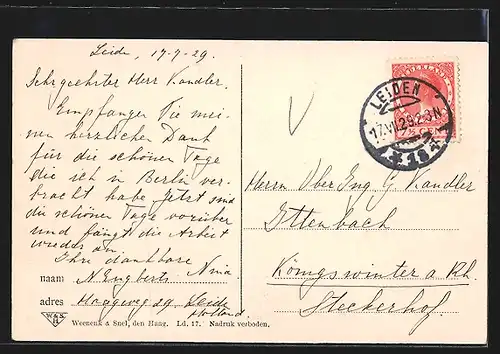 Leide, 17-7-29.
Sehr geehrter Herr Kandler.
Empfangen Sie mei-
nen herzlichen Dank
für die schönen Tage
die ich in Berlin ver-
bracht habe. Jetzt sind
die schönen Tage vorüber
und fängt die Arbeit
wieder an.
Ihre dankbare
naam N Engberts Nina
adres Haagweg 59 Leide
Holland.
Weenenk & Snel, den Haag. Ld. 17. Nadruk verboden.
W&S
H
NEDERLAND
LEIDEN
17.VII.29.2-3N
Herrn Ober Ing G Kandler
Ittenbach
Königswinter a Rh.
Steckerhof.